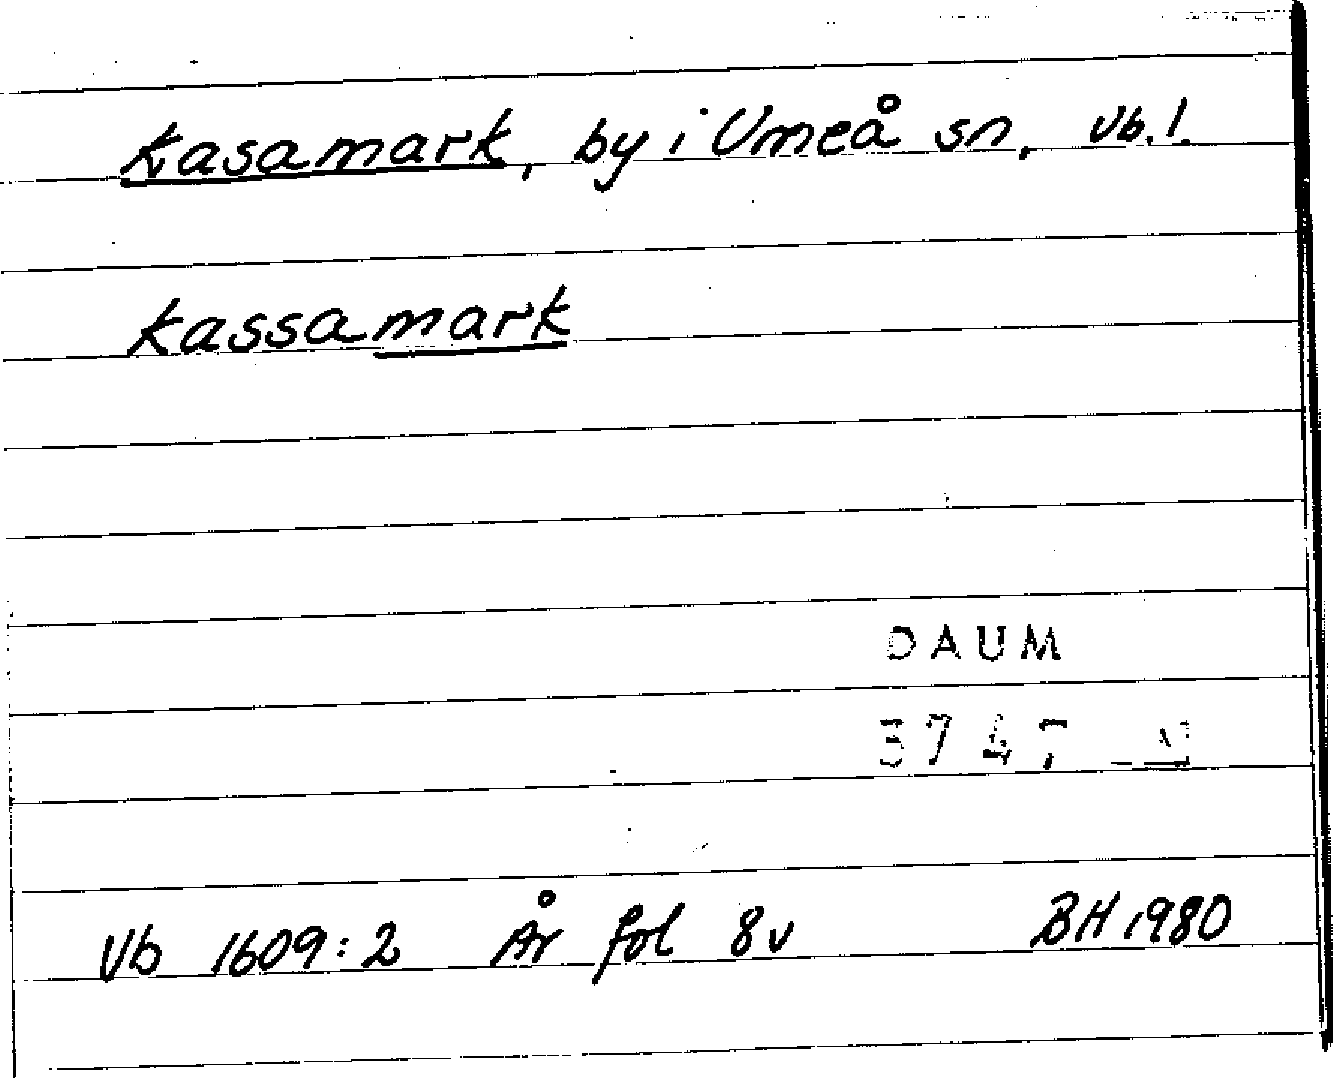 Kasamark, by i Umeå sn, Vb.l.
Kassamark
DAUM
3747
Vb 1609:2 År fol 8v BH 1980